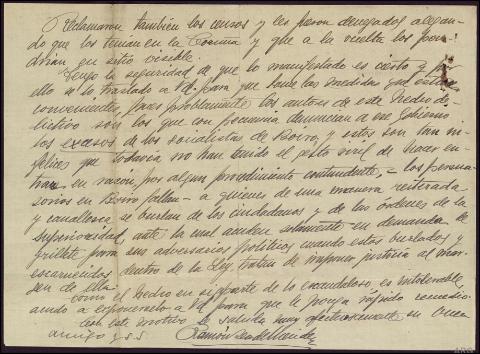 Reclamaron también los censos y les fueron denegados alegan-
do que los tenían en la Coruña y que a la vuelta los pon-
drían en sitio visible.
Tengo la seguridad de que lo manifestado es cierto y por
ello se lo traslado a Vd. para que tome las medidas que estime
convenientes, pues probablemente los autores de este hecho de-
lictivo son los que con frecuencia denuncian a ese Gobierno
los excesos de los socialistas de Boiro, y estos son tan in-
felices que todavía no han tenido el gesto viril de hacer en-
trar en razón, por algun procedimiento contundente, – los persua-
sorios en Boiro fallan – a quienes de una manera reiterada
y canallesca se burlan de los ciudadanos y de las órdenes de la
superioridad, ante la cual acuden solamente en demanda de
grillete para sus adversarios políticos cuando estos burlados y
escarnecidos dentro de la Ley, tratan de imponer justicia al mar-
gen de ella.
Como el hecho en sí aparte de lo escandaloso, es intolerable,
acudo a exponerselo a Vd para que le ponga rápido remedio.
Con este motivo le saluda muy afectuosamente su buen
amigo y s.s.
Ramón